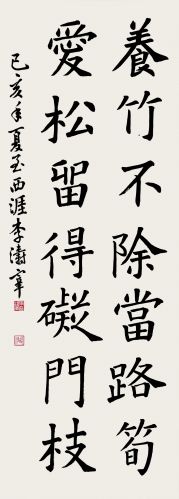 養竹不除當路筍
愛松留得礙門枝
己亥年夏至西涯李濤宰